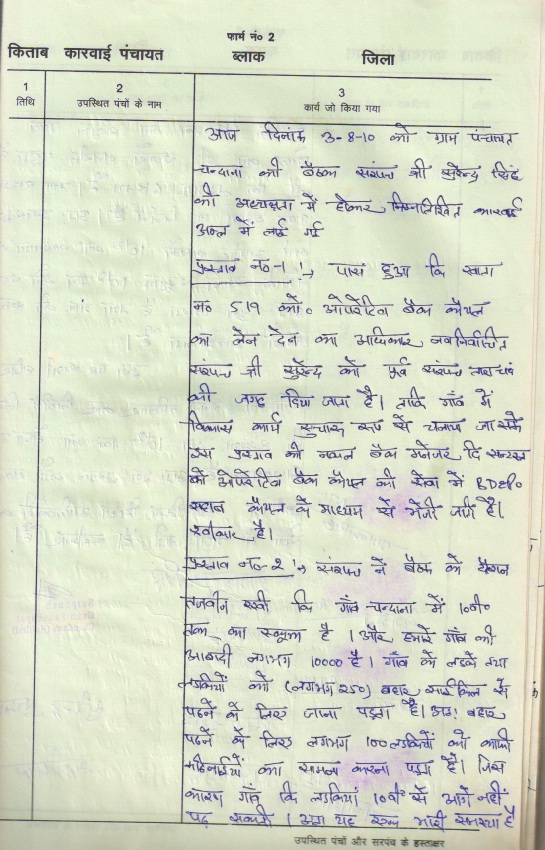 फार्म नं० 2
किताब कारवाई पंचायत ब्लाक जिला
1 2 3
तिथि उपस्थित पंचों के नाम कार्य जो किया गया
आज दिनांक 3-8-10 को ग्राम पंचायत
चन्दाना की बैठक सरंपच श्री सुरेन्द्र सिंह
की अध्यक्षता में होकर निम्नलिखित कारवाई
अमल में लाई गई
प्रस्ताव नं०-1 पास हुआ कि खाता
न० 519 को० ओपरेटिव बैंक कैथल
का लेन देन का अधिकार नवनिर्वाचित
सरंपच श्री सुरेन्द्र को पूर्व सरंपच ताराचंद
की जगह दिया जाता है। ताकि गाँव में
विकास कार्य सुचारू रूप से चलाया जा सके
इस प्रस्ताव की नकल बैंक मनेजर दि सन्टरल
को ओपरेटिव बैंक कैथल की सेवा में BDPO
साहब कैथल के माध्यम से भेजी जाती है।
स्वीकार है।
प्रस्ताव नं०-2 सरंपच ने बैठक के दौरान
तजवीज रखी कि गाँव चन्दाना में 10वी०
तक का स्कूल है । और हमारे गाँव की
आबादी लगभग 10000 है। गाँव के लडके तथा
लडकियों को (लगभग 250) बहार साईकिल से
पढने के लिए जाना पडता है। अतः बहार
पढने के लिए लगभग 100 लडकियों को काफी
कठिनाईयों का सामना करना पडता है। जिस
कारण गाँव कि लडकियां 10वी० से आगे नहीं
पढ सकती । अतः यह एक भारी समस्या है
उपस्थित पंचों और सरपंच के हस्ताक्षर